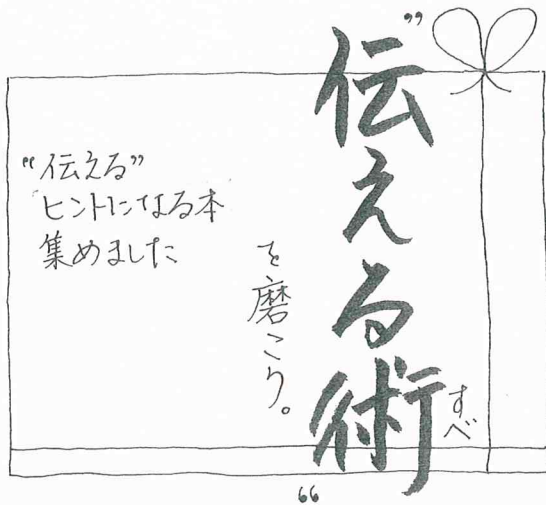 ”伝える術“
すべ
を磨こう。
“伝える”
ヒントになる本
集めました